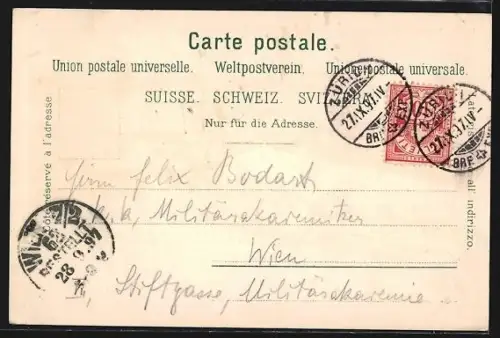 Carte postale.
Union postale universelle. Weltpostverein. Unione postale universale.
SUISSE. SCHWEIZ. SVIZZERA.
Nur für die Adresse.
Côté réservé à l'adresse
Lato riservato all' indirizzo.
ZÜRICH
27.IX.97.IV-
BRF. EXP.
ZÜRICH
27.IX.97.IV-
BRF. EXP.
10
Herrn Felix Bodart
k. k. Militärakademiker
Wien
Stiftgasse, Militärakademie
WIEN 7/2
BESTELLT
28.9.97